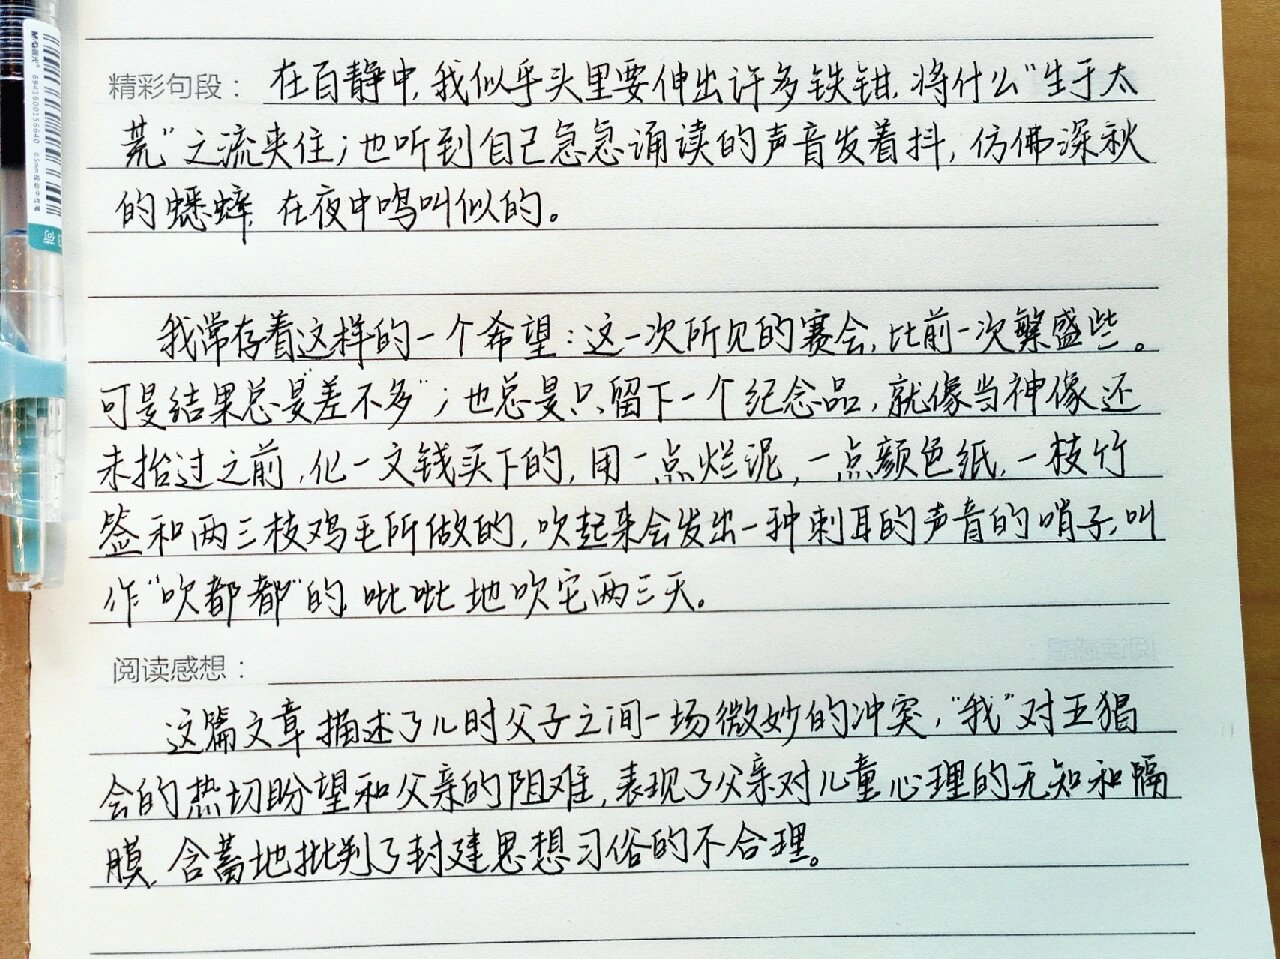 精彩句段：在百静中，我似乎头里要伸出许多铁钳，将什么“生于太
荒”之流夹住；也听到自己急急诵读的声音发着抖，仿佛深秋
的蟋蟀，在夜中鸣叫似的。
我常存着这样的一个希望：这一次所见的赛会，比前一次繁盛些。
可是结果总是“差不多”；也总是只留下一个纪念品，就像当神像还
未抬过之前，化一文钱买下的，用一点烂泥，一点颜色纸，一枝竹
签和两三枝鸡毛所做的，吹起来会发出一种刺耳的声音的哨子，叫
作“吹都都”的，吡吡地吹它两三天。
阅读感想：
这篇文章描述了儿时父子之间一场微妙的冲突，“我”对五猖
会的热切盼望和父亲的阻难，表现了父亲对儿童心理的无知和隔
膜，含蓄地批判了封建思想习俗的不合理。
M&G晨光
6941600156640